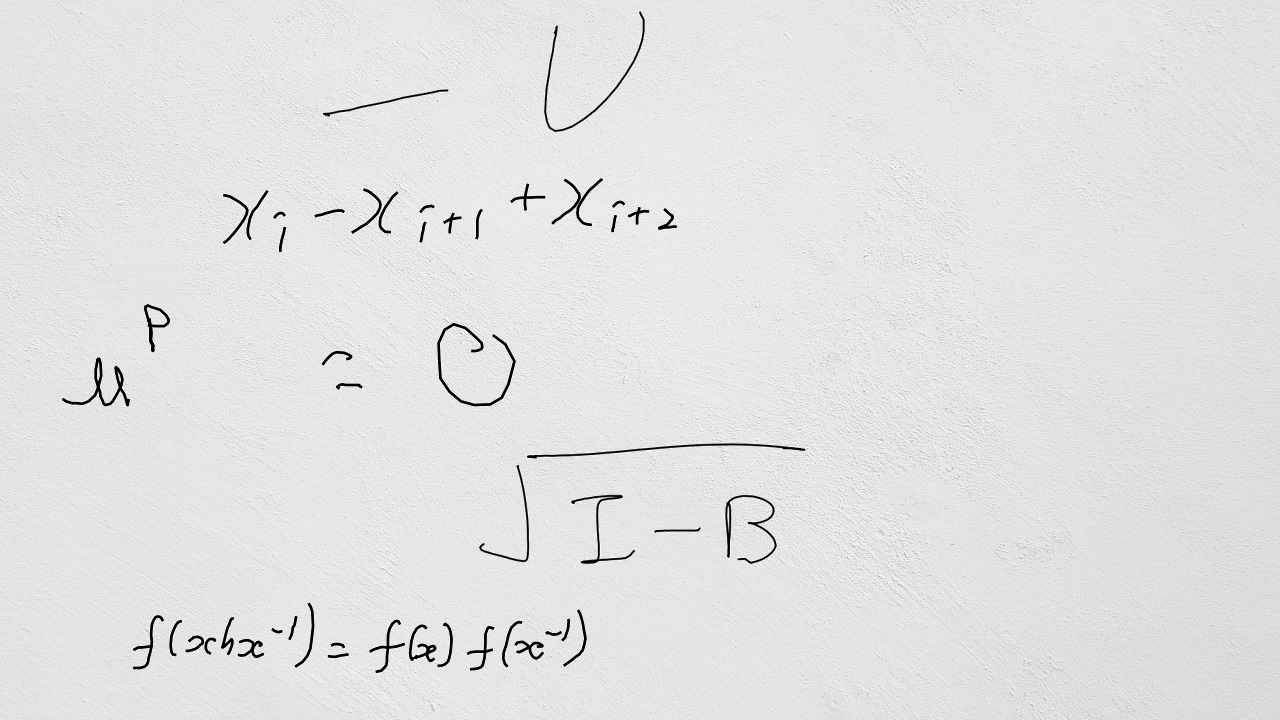 − U
x_i − x_{i+1} + x_{i+2}
μ^p = 0
√(I − B)
f(xhx^{-1}) = f(x) f(x^{-1})